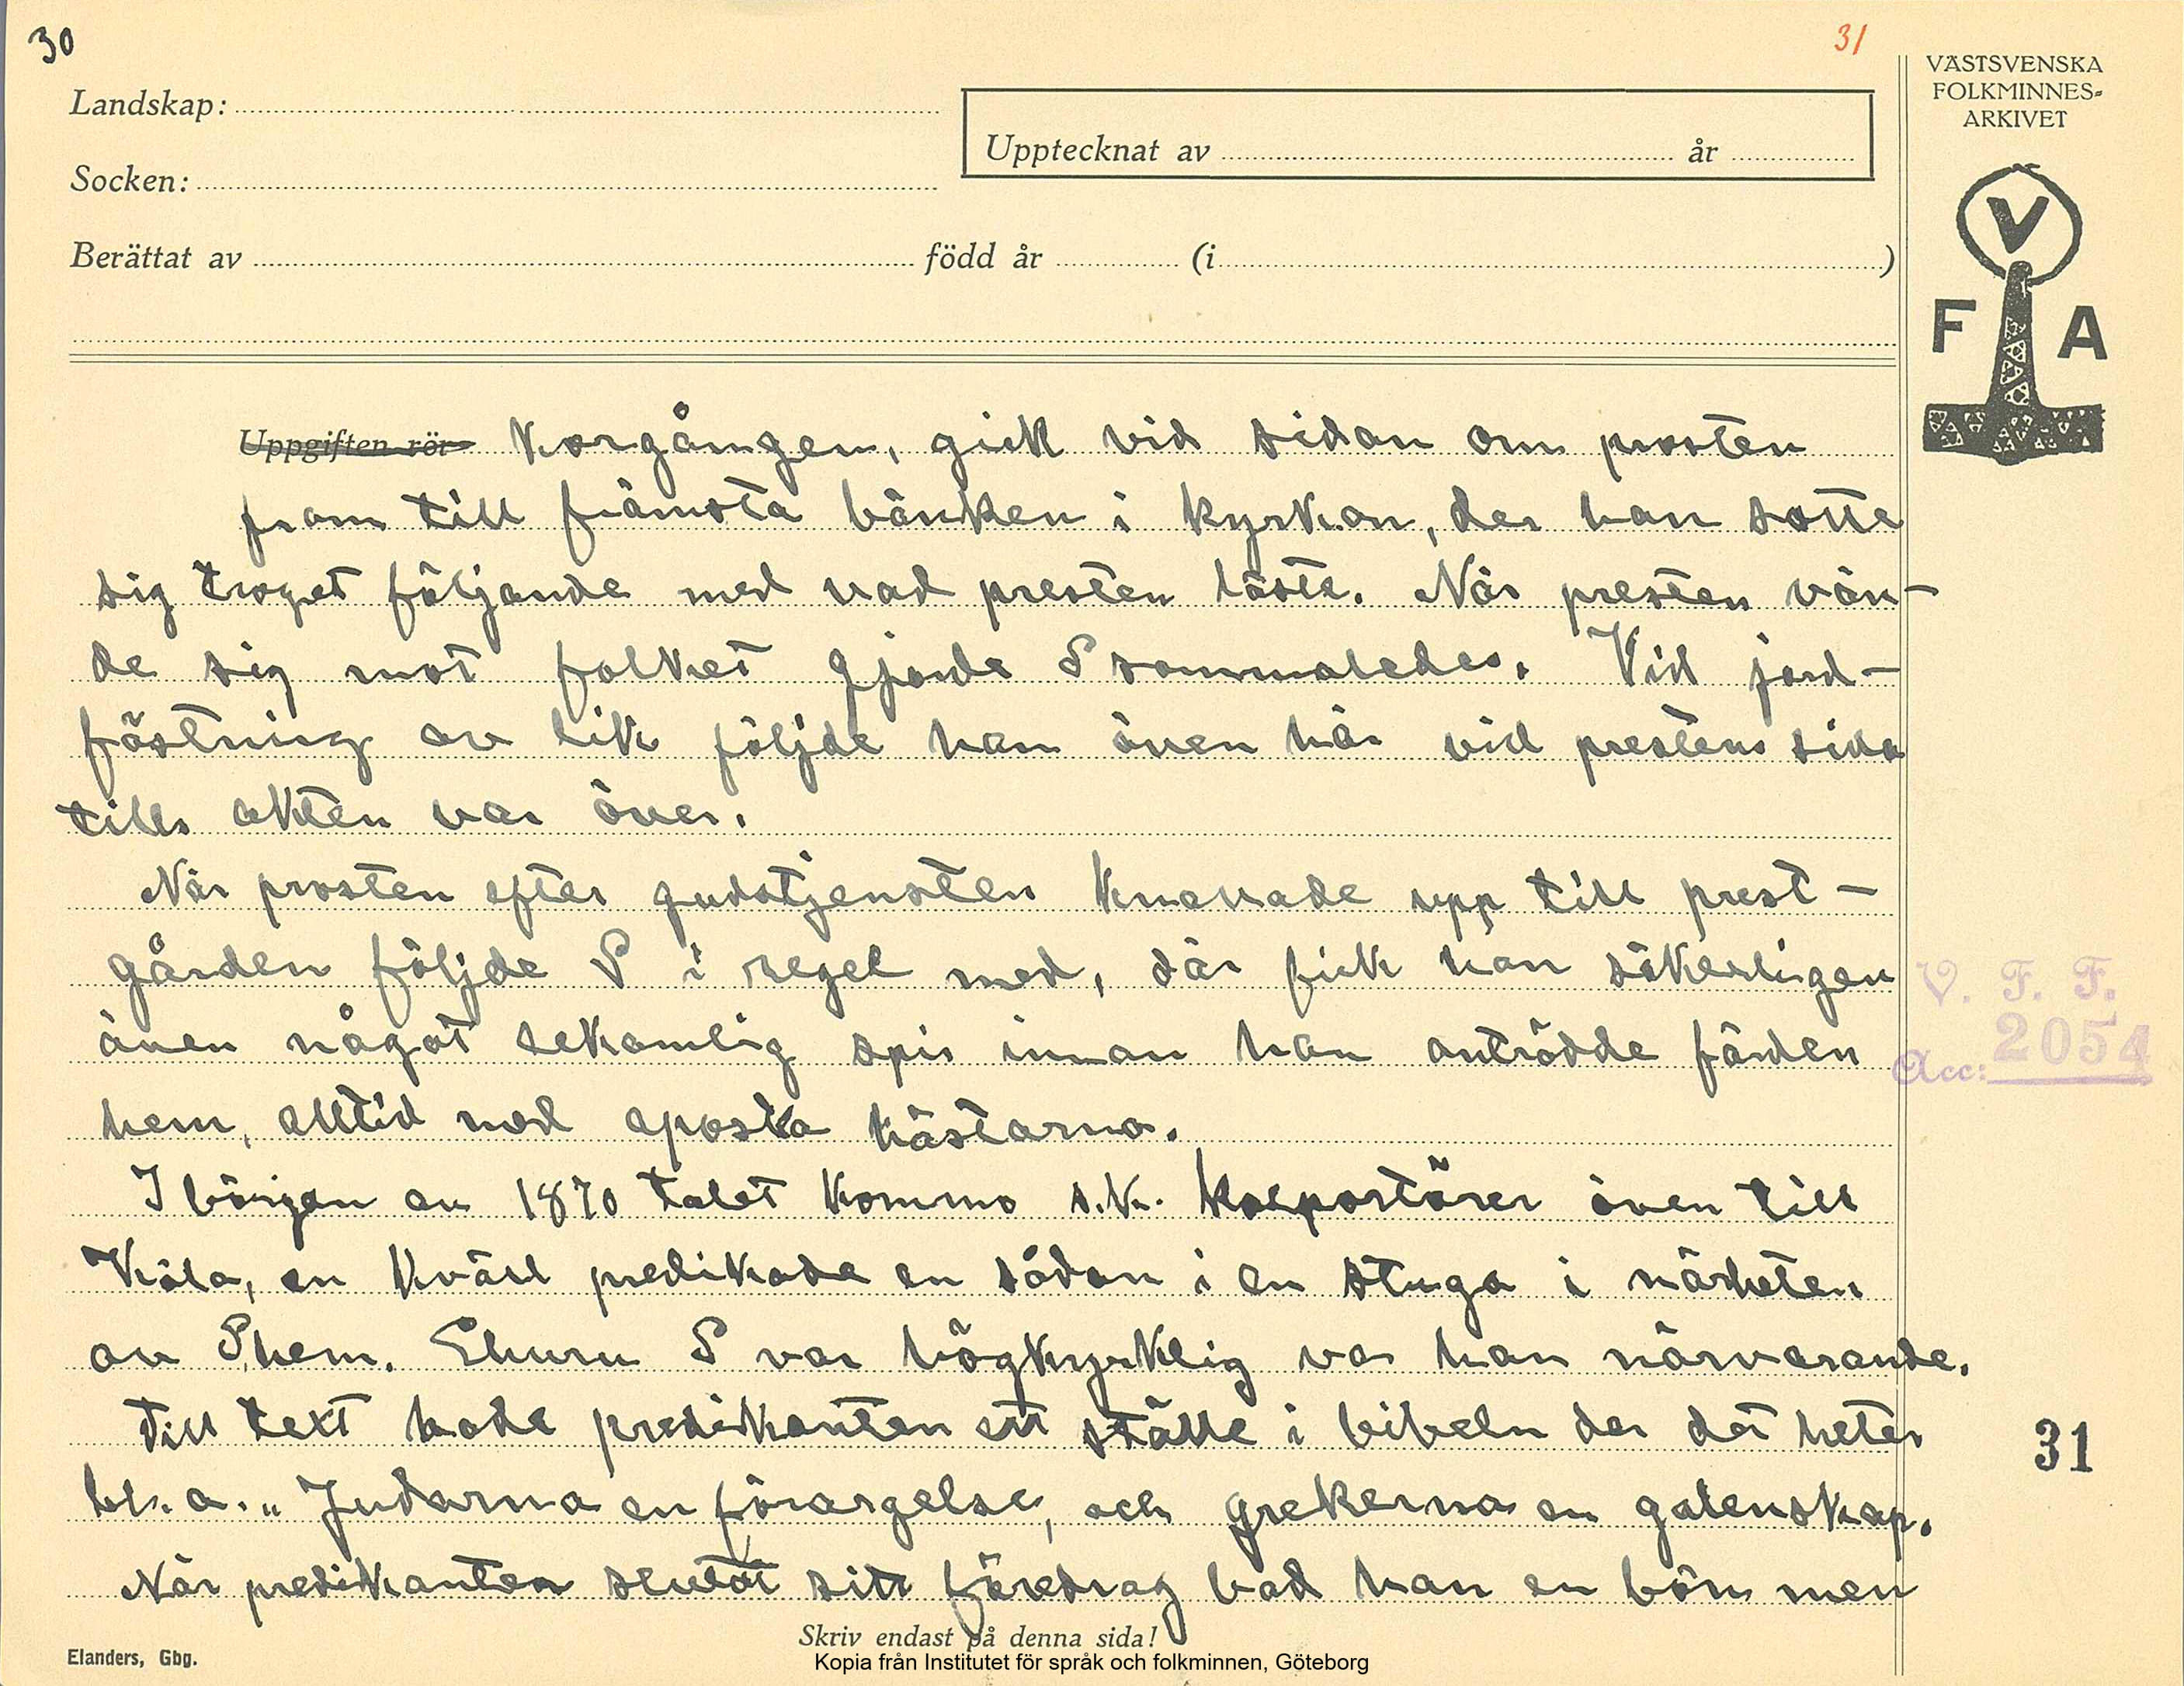 30
31
VÄSTSVENSKA
FOLKMINNES-
ARKIVET
Landskap:
Upptecknat av år
Socken:
Berättat av född år (i )
V
F A
Uppgiften rör korgången, gick vid sidan om prosten
fram till främsta bänken i kyrkan, der han satte
sig troget följande med vad presten läste. När presten vän-
de sig mot folket gjorde P sammaledes. Vid jord-
fästning av lik följde han även här vid prestens sida
tills akten var över.
När prosten efter gudstjensten knallade upp till prest-
gården följde P i regel med, där fick han säkerligen
även något lekamlig spis innan han anträdde färden
hem, alltid med aposta hästarna.
I början av 1870 talet kommo s.k. kolportörer även till
Köla, en kväll predikade en sådan i en stuga i närheten
av P hem. Ehuru P var högkyrklig var han närvarande.
Till text hade predikanten ett ställe i bibeln der det heter
bl. a. „ Judarna en förargelse, och grekerna en galenskap.
När predikanten slutat sitt föredrag bad han en bön men
V. F. F.
Acc: 2054
31
Skriv endast på denna sida!
Elanders, Gbg.
Kopia från Institutet för språk och folkminnen, Göteborg